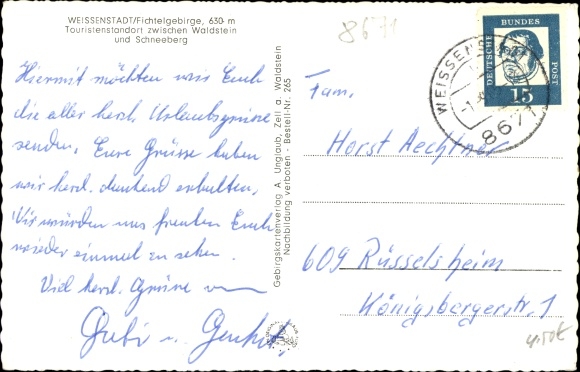 WEISSENSTADT/Fichtelgebirge, 630 m
Touristenstandort zwischen Waldstein
und Schneeberg
8671
Hiermit möchten wir Euch
die aller herzl. Urlaubsgrüsse
senden. Eure Grüsse haben
wir herzl. dankend erhalten.
Wir würden uns freuen Euch
wieder einmal zu sehen.
Viel herzl. Grüsse
Gebirgskartenverlag A. Unglaub, Zell a. Waldstein
Nachbildung verboten - Bestell-Nr. 265
DEUTSCHE BUNDES POST
15
WEISSENS
8671
Fam.
Horst Aechtner
609 Rüsselsheim
Königsbergerstr. 1
4,50€